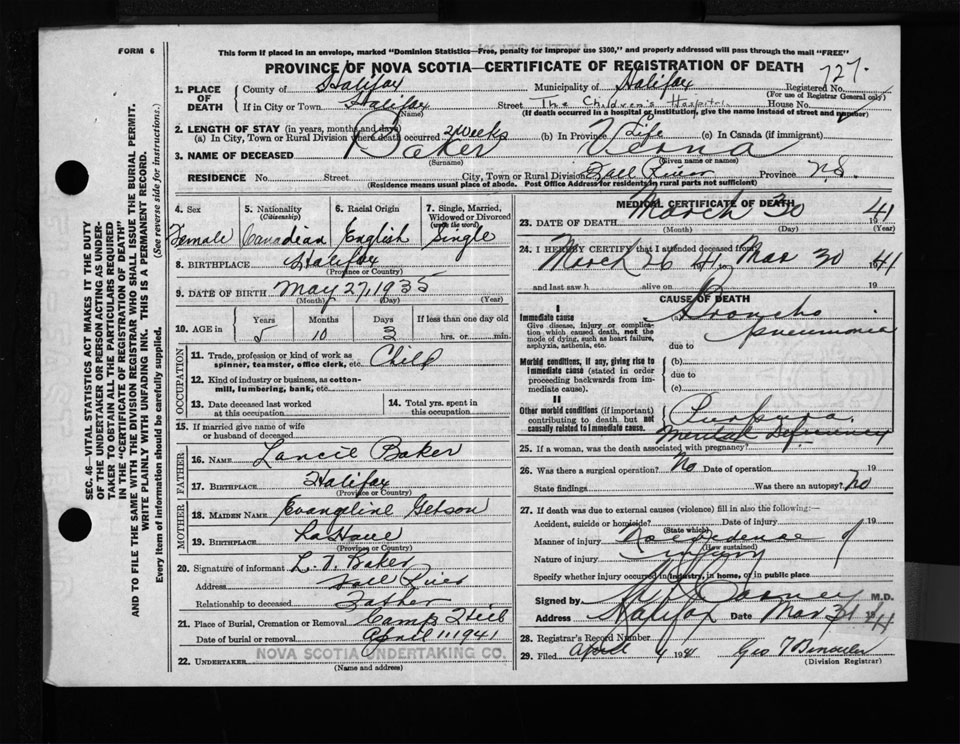 FORM 6
This form if placed in an envelope, marked "Dominion Statistics—Free, penalty for improper use $300," and properly addressed will pass through the mail "FREE"
PROVINCE OF NOVA SCOTIA—CERTIFICATE OF REGISTRATION OF DEATH
1. PLACE OF DEATH
County of Halifax Municipality of Halifax Registered No. 727.
(For use of Registrar General only)
If in City or Town Halifax Street The Children's Hospital House No.
(Name) (If death occurred in a hospital or institution, give the name instead of street and
2. LENGTH OF STAY (in years, months and days)
(a) In City, Town or Rural Division where death occurred 2 weeks (b) In Province Life (c) In Canada (if immigrant)
3. NAME OF DECEASED Baker Verna
(Surname) (Given name or names)
RESIDENCE No. Street City, Town or Rural Division Fall River Province N.S.
(Residence means usual place of abode. Post Office Address for residents in rural parts not sufficient)
4. Sex Female
5. Nationality (Citizenship) Canadian
6. Racial Origin English
7. Single, Married, Widowed or Divorced (write the word) Single
8. BIRTHPLACE Halifax
(Province or Country)
9. DATE OF BIRTH May 27, 1935
(Month) (Day) (Year)
10. AGE in Years Months Days If less than one day old
5 10 3 hrs. or min.
OCCUPATION
11. Trade, profession or kind of work as spinner, teamster, office clerk, etc. Child
12. Kind of industry or business, as cotton-mill, lumbering, bank, etc.
13. Date deceased last worked at this occupation
14. Total yrs. spent in this occupation
15. If married give name of wife or husband of deceased
FATHER
16. NAME Lancil Baker
17. BIRTHPLACE Halifax
(Province or Country)
MOTHER
18. MAIDEN NAME Evangeline Getson
19. BIRTHPLACE LaHave
(Province or Country)
20. Signature of informant L. T. Baker
Address Fall River
Relationship to deceased Father
21. Place of Burial, Cremation or Removal Camp Hill
Date of burial or removal April 1 1941
22. UNDERTAKER NOVA SCOTIA UNDERTAKING CO.
(Name and address)
MEDICAL CERTIFICATE OF DEATH
23. DATE OF DEATH March 30 1941
(Month) (Day) (Year)
24. I HEREBY CERTIFY that I attended deceased from
March 26 41 to Mar 30 1941
and last saw h alive on 19
CAUSE OF DEATH
I
Immediate cause
Give disease, injury or complication which caused death, not the mode of dying, such as heart failure, asphyxia, asthenia, etc.
(a) Broncho pneumonia
due to
Morbid conditions, if any, giving rise to immediate cause (stated in order proceeding backwards from immediate cause).
(b)
due to
(c)
II
Other morbid conditions (if important) contributing to death but not causally related to immediate cause.
Purpura
Mental Deficiency
25. If a woman, was the death associated with pregnancy?
26. Was there a surgical operation? No Date of operation 19
State findings Was there an autopsy? no
27. If death was due to external causes (violence) fill in also the following:—
Accident, suicide or homicide? Date of injury 19
(State which)
Manner of injury No evidence
(How sustained)
Nature of injury injury
Specify whether injury occurred in industry, in home, or in public place
Signed by M.D.
Address Halifax Date Mar 31 1941
28. Registrar's Record Number
29. Filed April 1941 Geo T
(Division Registrar)
SEC. 46—VITAL STATISTICS ACT MAKES IT THE DUTY
OF THE UNDERTAKER OR PERSON ACTING AS UNDER-
TAKER TO OBTAIN ALL THE PARTICULARS REQUIRED
IN THE "CERTIFICATE OF REGISTRATION OF DEATH"
AND TO FILE THE SAME WITH THE DIVISION REGISTRAR WHO SHALL ISSUE THE BURIAL PERMIT.
WRITE PLAINLY WITH UNFADING INK. THIS IS A PERMANENT RECORD.
Every item of information should be carefully supplied. (See reverse side for instructions.)